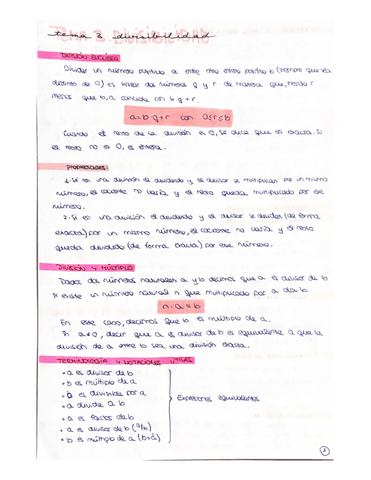 Tema 3. divisibilidad
DIVISIÓN EUCLÍDEA
Dividir un número positivo a entre otro entero positivo b (siempre que sea
distinto de 0) es hallar dos números q y r de manera que, siendo r
menor que b, a coincide con b·q+r.
a=b·q+r con 0≤r≤b
Cuando el resto de la división es 0, se dice que es exacta. Si
el resto no es 0, es entera.
PROPIEDADES:
1. Si en una división el dividendo y el divisor se multiplican por un mismo
número, el cociente no varía y el resto queda multiplicado por ese
número.
2. Si en una división el dividendo y el divisor se dividen (de forma
exacta) por un mismo número, el cociente no varía y el resto
queda dividido (de forma exacta) por ese número.
DIVISIÓN Y MÚLTIPLO
Dados dos números naturales a y b decimos que a es divisor de b
si existe un número natural n que multiplicado por a da b
n·a=b
En este caso, decimos que b es múltiplo de a.
Si a≠0, decir que a es divisor de b es equivalente a que la
división de a entre b sea una división exacta.
TERMINOLOGÍA Y NOTACIONES ÚTILES
• a es divisor de b
• b es múltiplo de a
• b es divisible por a
• a divide a b
Expresiones equivalentes
• a es factor de b
• a es divisor de b (a/b)
• b es múltiplo de a (b=ȧ)
1